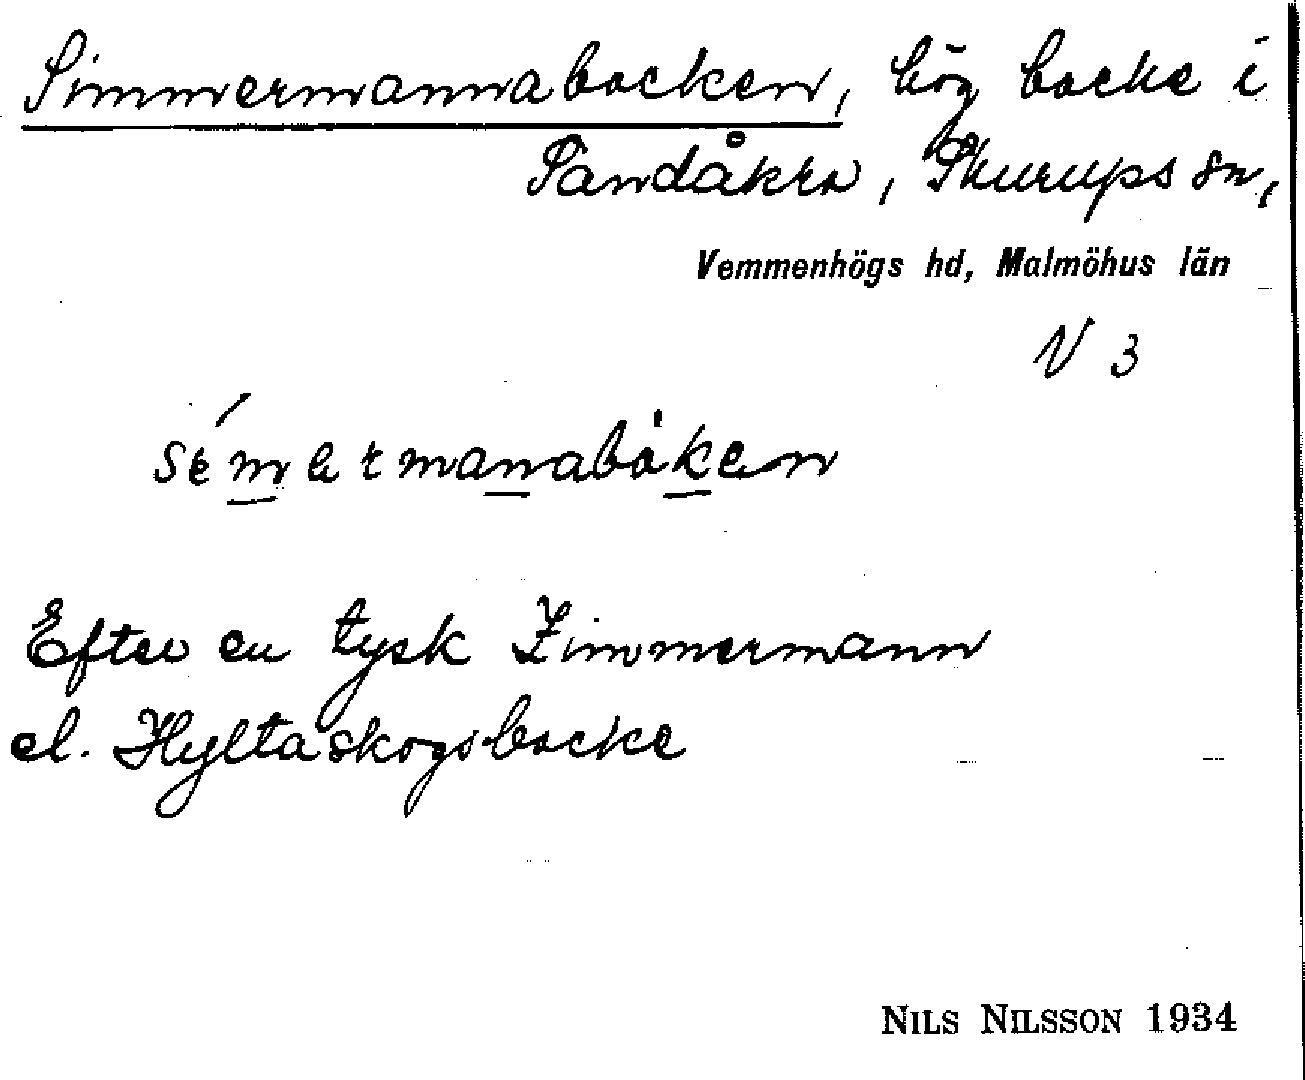 Simmermannabacken, hög backe i
Sandåkra, Skurups sn,
Vemmenhögs hd, Malmöhus län
V 3
sémermanabáken
Efter en tysk Zimmermann
el. Hyltaskogsbacke
NILS NILSSON 1934